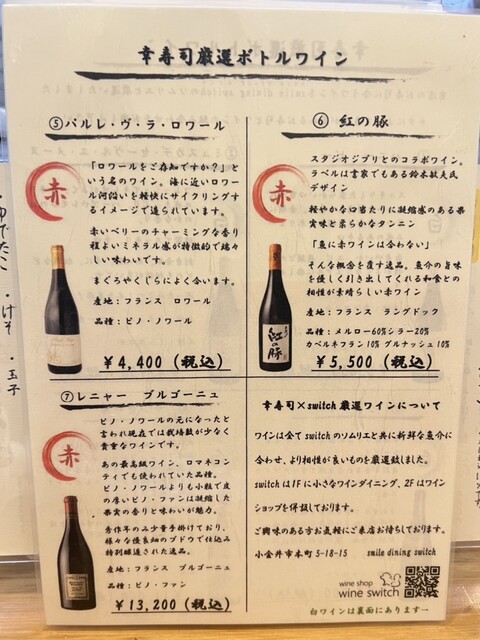 幸寿司厳選ボトルワイン
⑤パルレ・ヴ・ラ・ロワール
赤
「ロワールをご存知ですか？」と
いう名のワイン。海に近いロワー
ル河沿いを軽快にサイクリングす
るイメージで造られています。
赤いベリーのチャーミングな香り
程よいミネラル感が特徴的で瑞々
しい味わいです。
まぐろやくじらによく合います。
産地：フランス ロワール
品種：ピノ・ノワール
￥4,400（税込）
⑥ 紅の豚
赤
スタジオジブリとのコラボワイン。
ラベルは書家でもある鈴木敏夫氏
デザイン
軽やかな口当たりに凝縮感のある果
実味と柔らかなタンニン
「魚に赤ワインは合わない」
そんな概念を覆す逸品。魚介の旨味
を優しく引き出してくれる和食との
相性が素晴らしい赤ワイン
産地：フランス ラングドック
品種：メルロー60％シラー20％
カベルネフラン10％グルナッシュ10％
紅の豚
￥5,500（税込）
⑦レニャー ブルゴーニュ
赤
ピノ・ノワールの元になったと
言われ現在では栽培数が少なく
貴重なワインです。
あの最高級ワイン、ロマネコン
ティでも使われていた品種。
ピノ・ノワールよりも小粒で皮
の厚いピノ・ファンは凝縮した
果実の香りと味わいが魅力。
秀作年のみ少量手掛けており、
様々な優良畑のブドウで仕込み
特別醸造された逸品。
産地：フランス ブルゴーニュ
品種：ピノ・ファン
￥13,200（税込）
幸寿司×switch厳選ワインについて
ワインは全てswitchのソムリエと共に新鮮な魚介に
合わせ、より相性が良いものを厳選致しました。
switchは1Fに小さなワインダイニング、2Fはワイン
ショップを併設しております。
ご興味のある方お気軽にご来店お待ちしております。
小金井市本町5-18-15 smile dining switch
wine shop
wine switch
白ワインは裏面にあります→
ゆでだこ
・げそ
・玉子